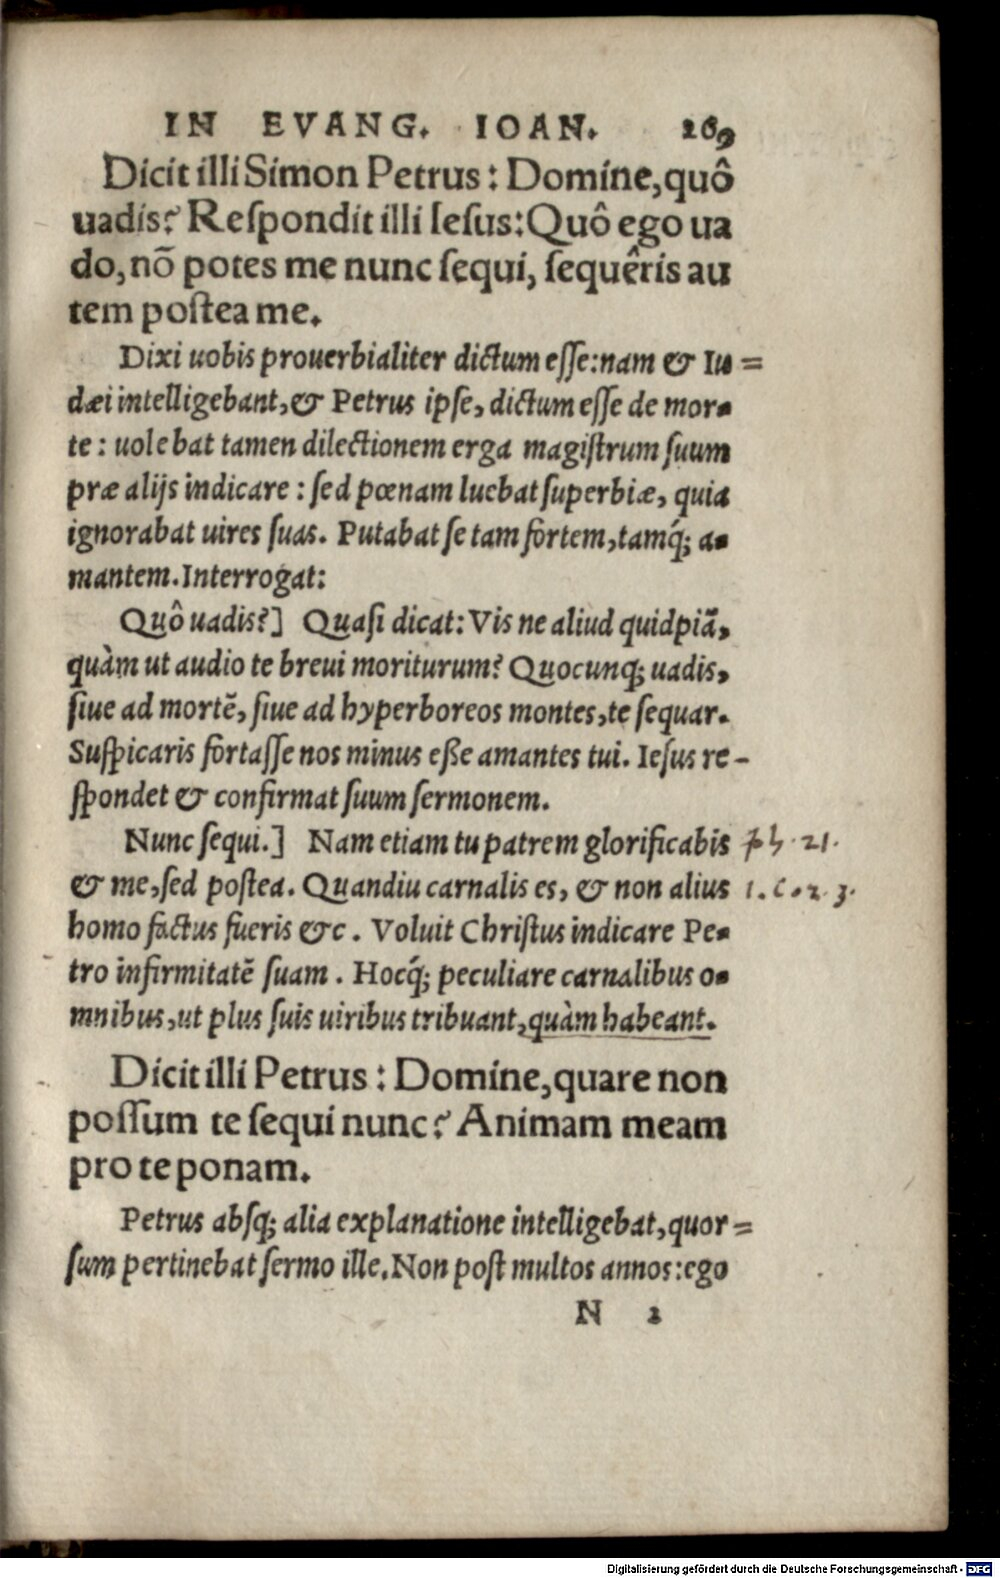 IN EVANG. IOAN. 269
Dicit illi Simon Petrus: Domine, quô
uadis? Reſpondit illi Ieſus: Quô ego ua
do, nō potes me nunc ſequi, ſequêris au
tem poſtea me.
Dixi uobis prouerbialiter dictum eſſe: nam & Iu=
dæi intelligebant, & Petrus ipſe, dictum eſſe de mor-
te: uolebat tamen dilectionem erga magiſtrum ſuum
præ alijs indicare: ſed pœnam luebat ſuperbiæ, quia
ignorabat uires ſuas. Putabat ſe tam fortem, tamq́; a-
mantem. Interrogat:
Quô uadis?] Quaſi dicat: Vis ne aliud quidpiā,
quàm ut audio te breui moriturum? Quocunq; uadis,
ſiue ad mortē, ſiue ad hyperboreos montes, te ſequar.
Suſpicaris fortaſſe nos minus eße amantes tui. Ieſus re-
ſpondet & confirmat ſuum ſermonem.
Nunc ſequi.] Nam etiam tu patrem glorificabis 21.
& me, ſed poſtea. Quandiu carnalis es, & non alius 1. C. 2. 3.
homo factus fueris &c. Voluit Chriſtus indicare Pe-
tro infirmitatē ſuam. Hocq́; peculiare carnalibus o-
mnibus, ut plus ſuis uiribus tribuant, quàm habeant.
Dicit illi Petrus: Domine, quare non
poſſum te ſequi nunc? Animam meam
pro te ponam.
Petrus abſq; alia explanatione intelligebat, quor=
ſum pertinebat ſermo ille. Non poſt multos annos: ego
N 2
Digitalisierung gefördert durch die Deutsche Forschungsgemeinschaft - DFG